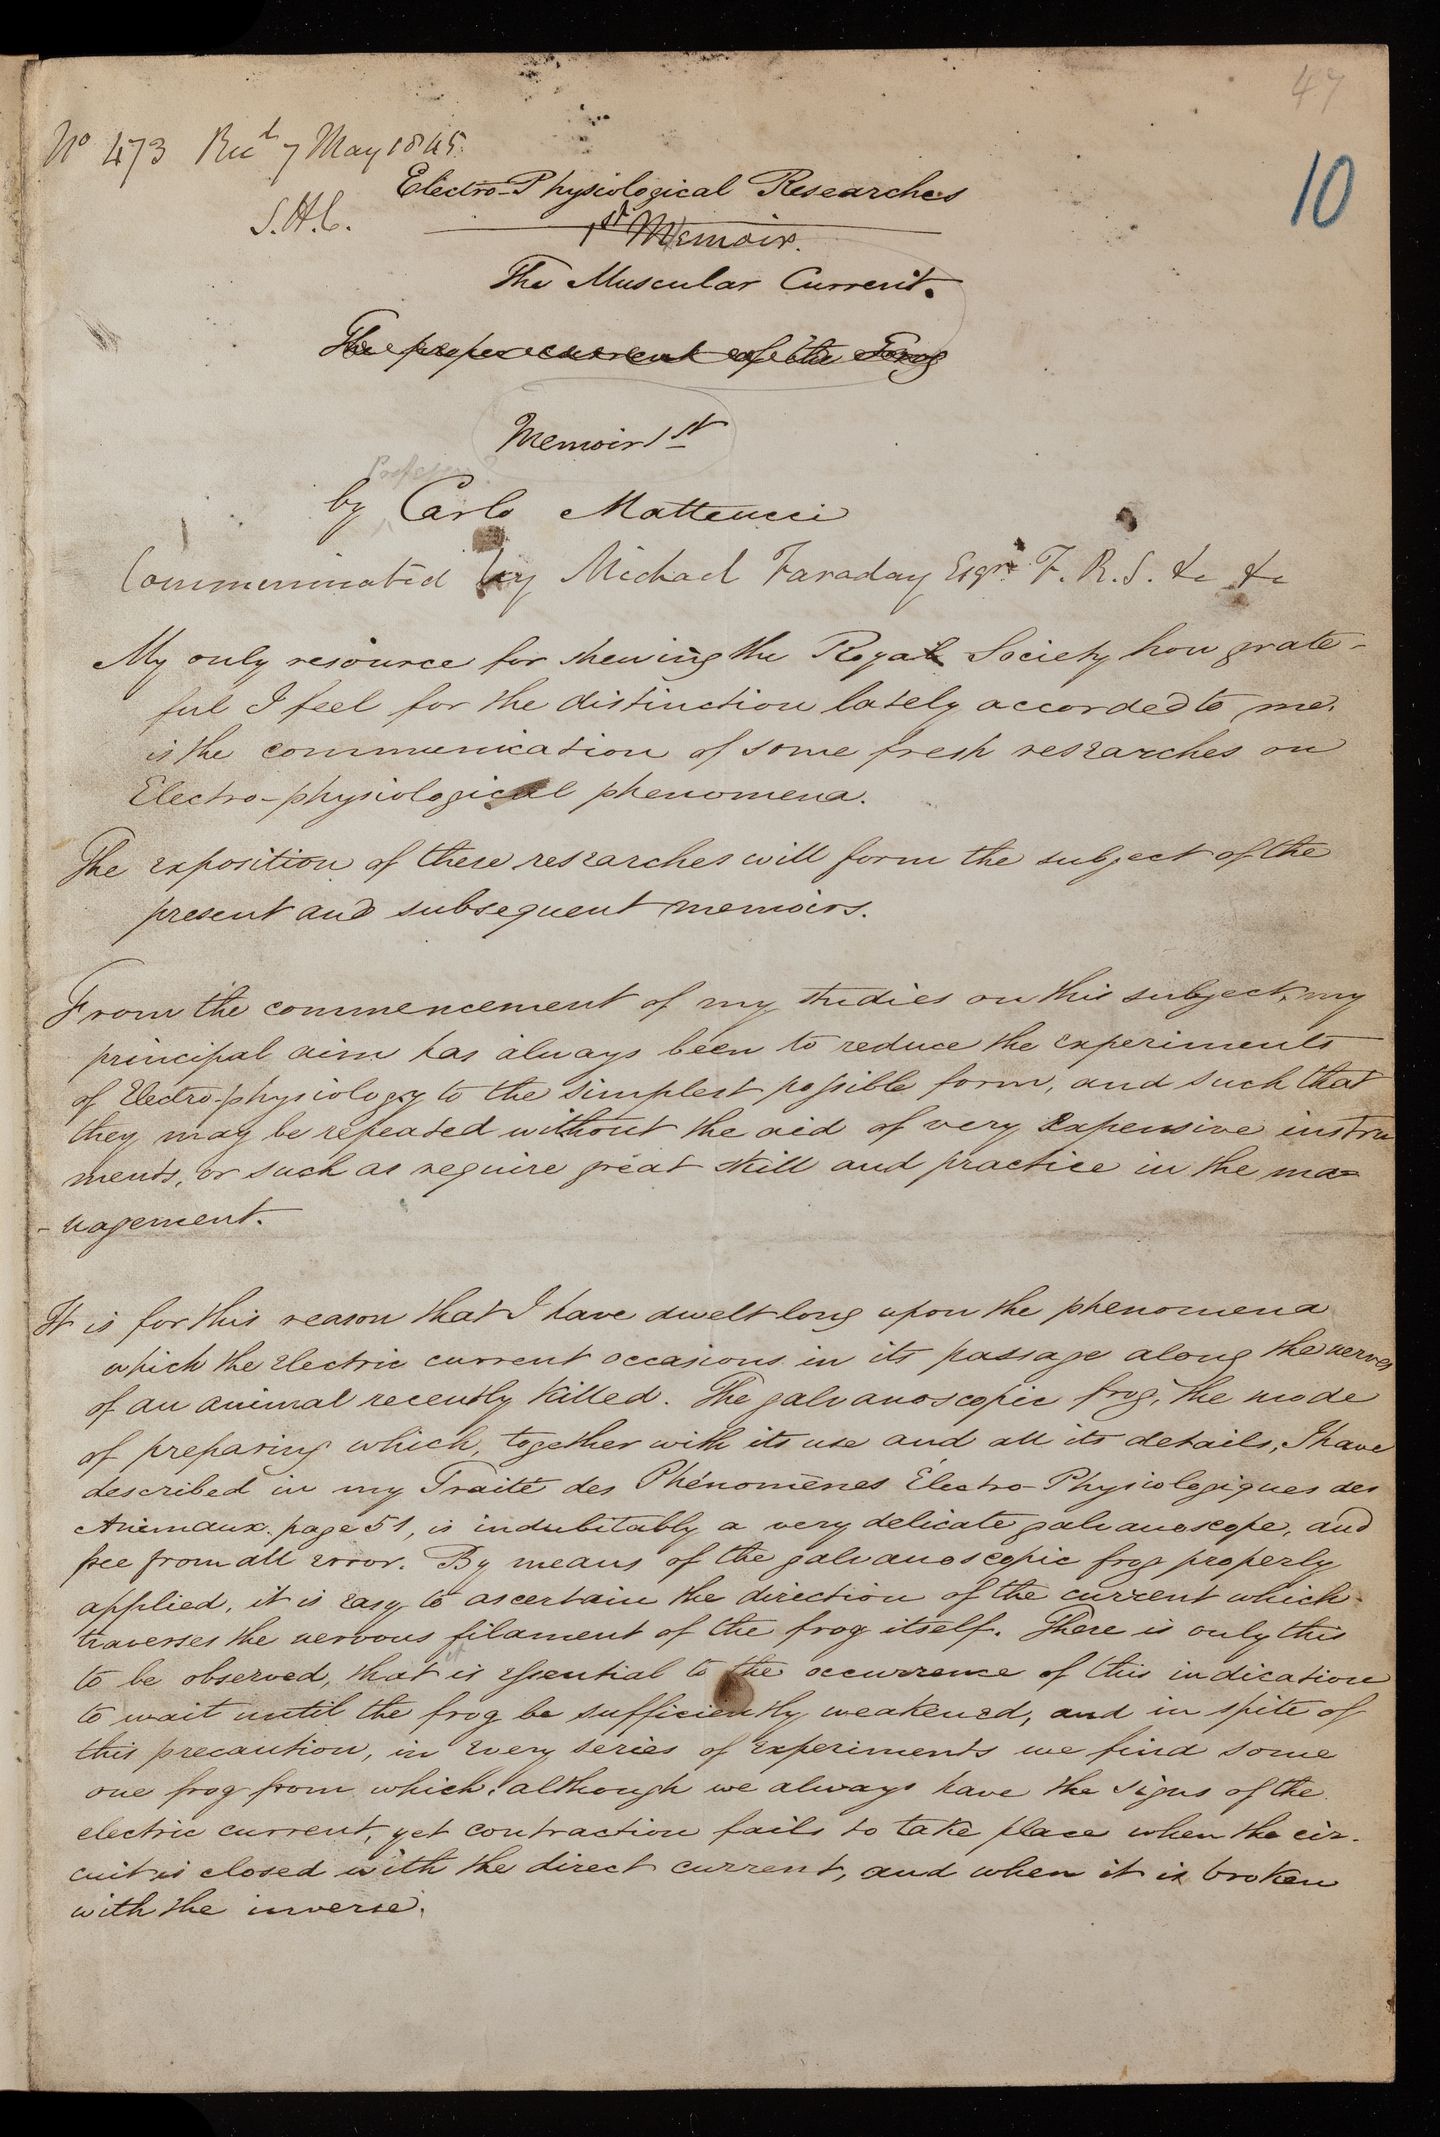 47
10
No 473 Recd 7 May 1845.
S.H.C.
Electro-Physiological Researches
1st Memoir.
The Muscular Current.
The proper current of the Frog
Memoir 1st
Professor
by Carlo Matteucci
Communicated by Michael Faraday Esqr. F.R.S. &c &c
My only resource for shewing the Royal Society how grate-
ful I feel for the distinction lately accorded to me,
is the communication of some fresh researches on
Electro-physiological phenomena.
The exposition of these researches will form the subject of the
present and subsequent memoirs.
From the commencement of my studies on this subject, my
principal aim has always been to reduce the experiments
of Electro-physiology to the simplest possible form, and such that
they may be repeated without the aid of very expensive instru
ments, or such as require great skill and practice in the ma=
-nagement.
It is for this reason that I have dwelt long upon the phenomena
which the electric current occasions in its passage along the nerves
of an animal recently killed. The galvanoscopic frog, the mode
of preparing which, together with its use and all its details, I have
described in my Traité des Phénomènes Électro-Physiologiques des
Animaux. page 51, is indubitably a very delicate galvanoscope, and
free from all error. By means of the galvanoscopic frog properly
applied, it is easy to ascertain the direction of the current which
traverses the nervous filament of the frog itself. There is only this
to be observed, that it is essential to the occurrence of this indication
to wait until the frog be sufficiently weakened, and in spite of
this precaution, in every series of experiments we find some
one frog from which, although we always have the signs of the
electric current, yet contraction fails to take place when the cir-
cuit is closed with the direct current, and when it is broken
with the inverse.